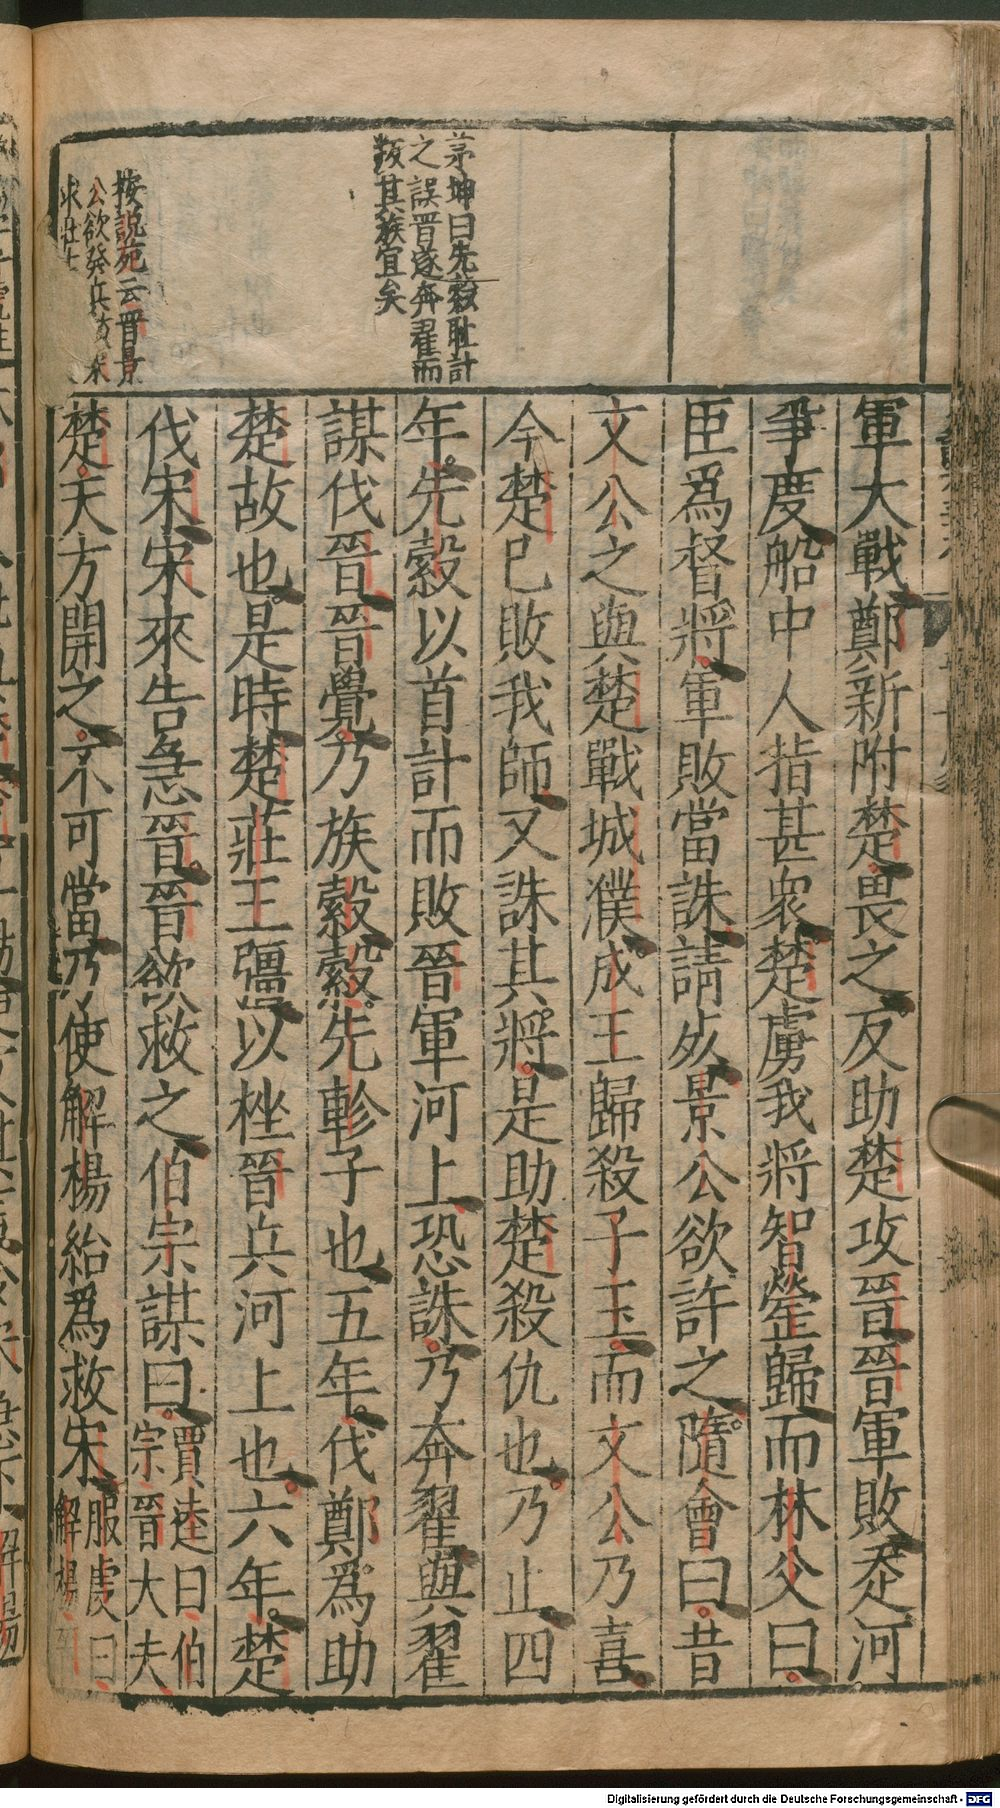 茅坤曰先縠耻計
之誤晉遂奔翟而
叛其族宜矣
按說苑云晉景
公欲發兵救宋
求壯士
軍大戰鄭新附楚畏之反助楚攻晉晉軍敗走河
爭度船中人指甚衆楚虜我將智罃歸而林父曰
臣爲督將軍敗當誅請死景公欲許之隨會曰昔
文公之與楚戰城濮成王歸殺子玉而文公乃喜
今楚已敗我師又誅其將是助楚殺仇也乃止四
年先縠以首計而敗晉軍河上恐誅乃奔翟與翟
謀伐晉晉覺乃族縠縠先軫子也五年伐鄭爲助
楚故也是時楚莊王彊以挫晉兵河上也六年楚
伐宋宋來告急晉晉欲救之伯宗謀曰賈逵曰伯宗晉大夫
楚天方開之不可當乃使解楊紿爲救宋服虔曰解楊
Digitalisierung gefördert durch die Deutsche Forschungsgemeinschaft - DFG